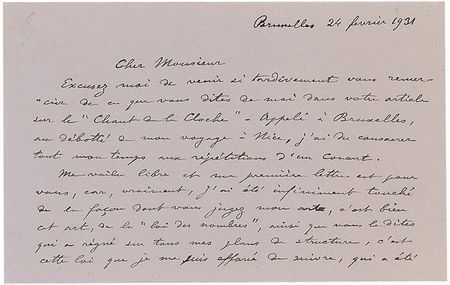 Bruxelles 24 février 1931
Cher Monsieur
Excusez moi de venir si tardivement vous remer-
"cier de ce que vous dites de moi dans votre article
sur le "Chant de la Cloche" - Appelé à Bruxelles,
au débotté de mon voyage à Nice, j'ai du consacrer
tout mon temps aux répétitions d'un Concert.
Me voilà libre et ma première lettre est pour
vous, car, vraiment, j'ai été infiniment touché
de la façon dont vous jugez mon art, c'est bien
cet art, de la "loi des nombres", ainsi que vous le dites
qui a régné sur tous mes plans de structure, c'est
cette loi que je me suis efforcé de suivre, qui a été